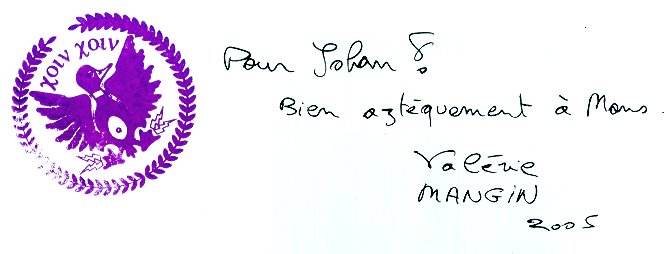 χοιν χοιν
Pour Johan
Bien aztèquement à Mons.
Valérie
MANGIN
2005